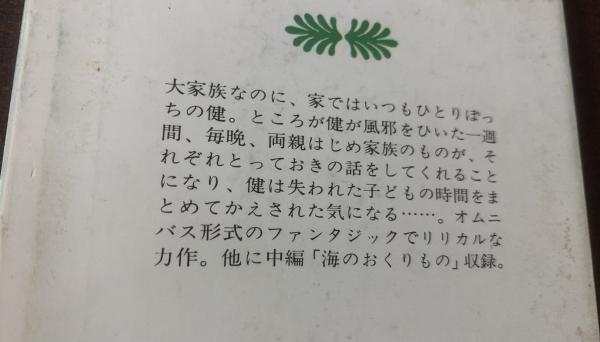 大家族なのに、家ではいつもひとりぼっ
ちの健。ところが健が風邪をひいた一週
間、毎晩、両親はじめ家族のものが、そ
れぞれとっておきの話をしてくれること
になり、健は失われた子どもの時間をま
とめてかえされた気になる……。オムニ
バス形式のファンタジックでリリカルな
力作。他に中編「海のおくりもの」収録。